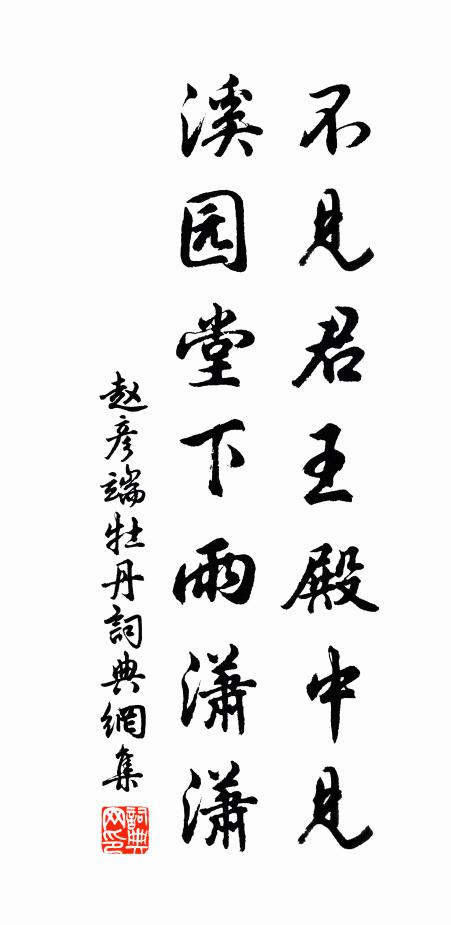 不见君王殿中见
溪园堂下雨潇潇
赵彦端牡丹詞典網集
詞典网印